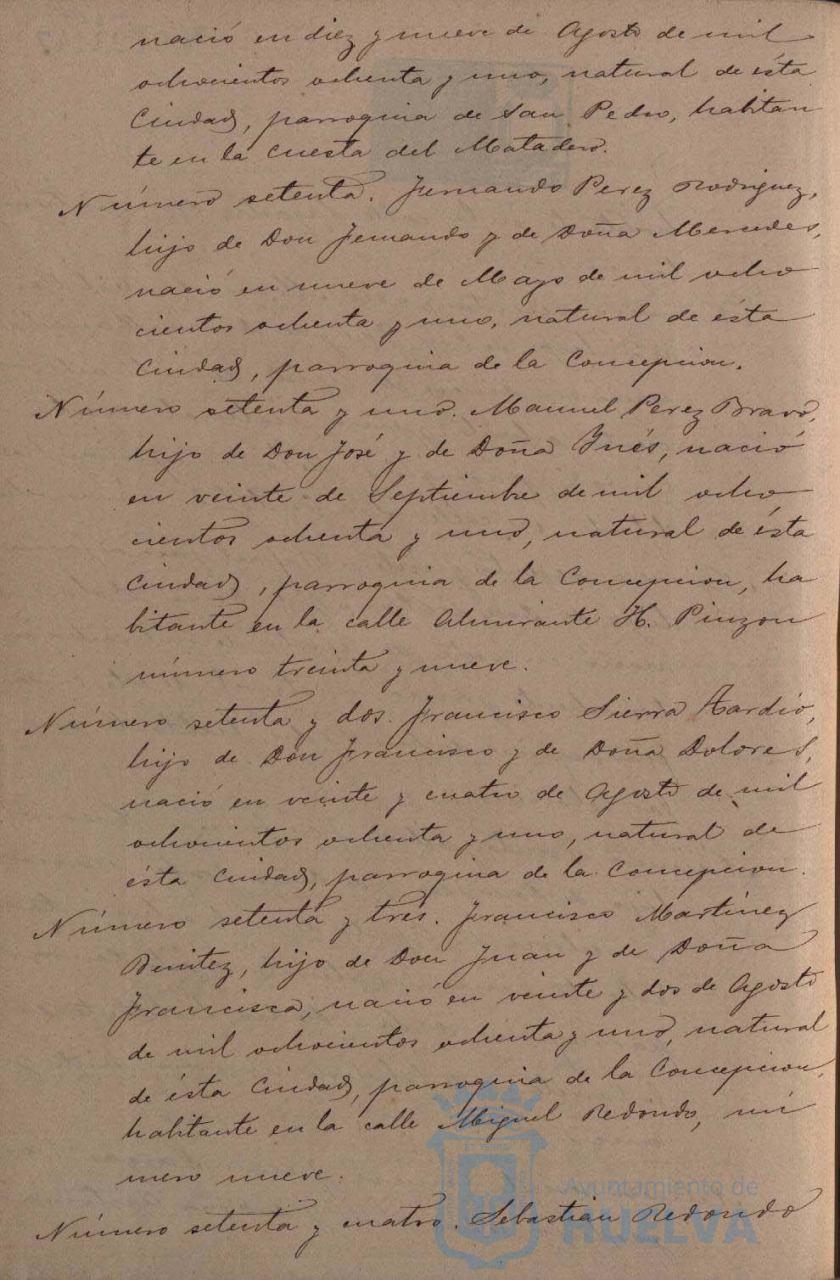 nació en diez y nueve de Agosto de mil
ochocientos ochenta y uno, natural de ésta
Ciudad, parroquia de San Pedro, habitan
te en la Cuesta del Matadero.
Número setenta. Fernando Perez Rodriguez,
hijo de Don Fernando y de Doña Mercedes,
nació en nueve de Mayo de mil ocho
cientos ochenta y uno, natural de ésta
Ciudad, parroquia de la Concepcion.
Número setenta y uno. Manuel Perez Bravo,
hijo de Don José y de Doña Ynés, nació
en veinte de Septiembre de mil ocho
cientos ochenta y uno, natural de ésta
Ciudad, parroquia de la Concepcion, ha
bitante en la calle Almirante H. Pinzon
número treinta y nueve.
Número setenta y dos. Francisco Sierra Tardio,
hijo de Don Francisco y de Doña Dolores,
nació en veinte y cuatro de Agosto de mil
ochocientos ochenta y uno, natural de
ésta Ciudad, parroquia de la Concepcion.
Número setenta y tres. Francisco Martinez
Benitez, hijo de Don Juan y de Doña
Francisca, nació en veinte y dos de Agosto
de mil ochocientos ochenta y uno, natural
de ésta Ciudad, parroquia de la Concepcion,
habitante en la calle Miguel Redondo, nú
mero nueve.
Ayuntamiento de
HUELVA
Número setenta y cuatro. Sebastian Redondo